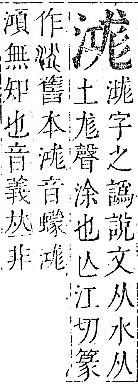 浝
浝字之譌說文从水从
土尨聲涂也亾江切篆
作舊本浝音蠓浝
澒無知也音義𠀤非